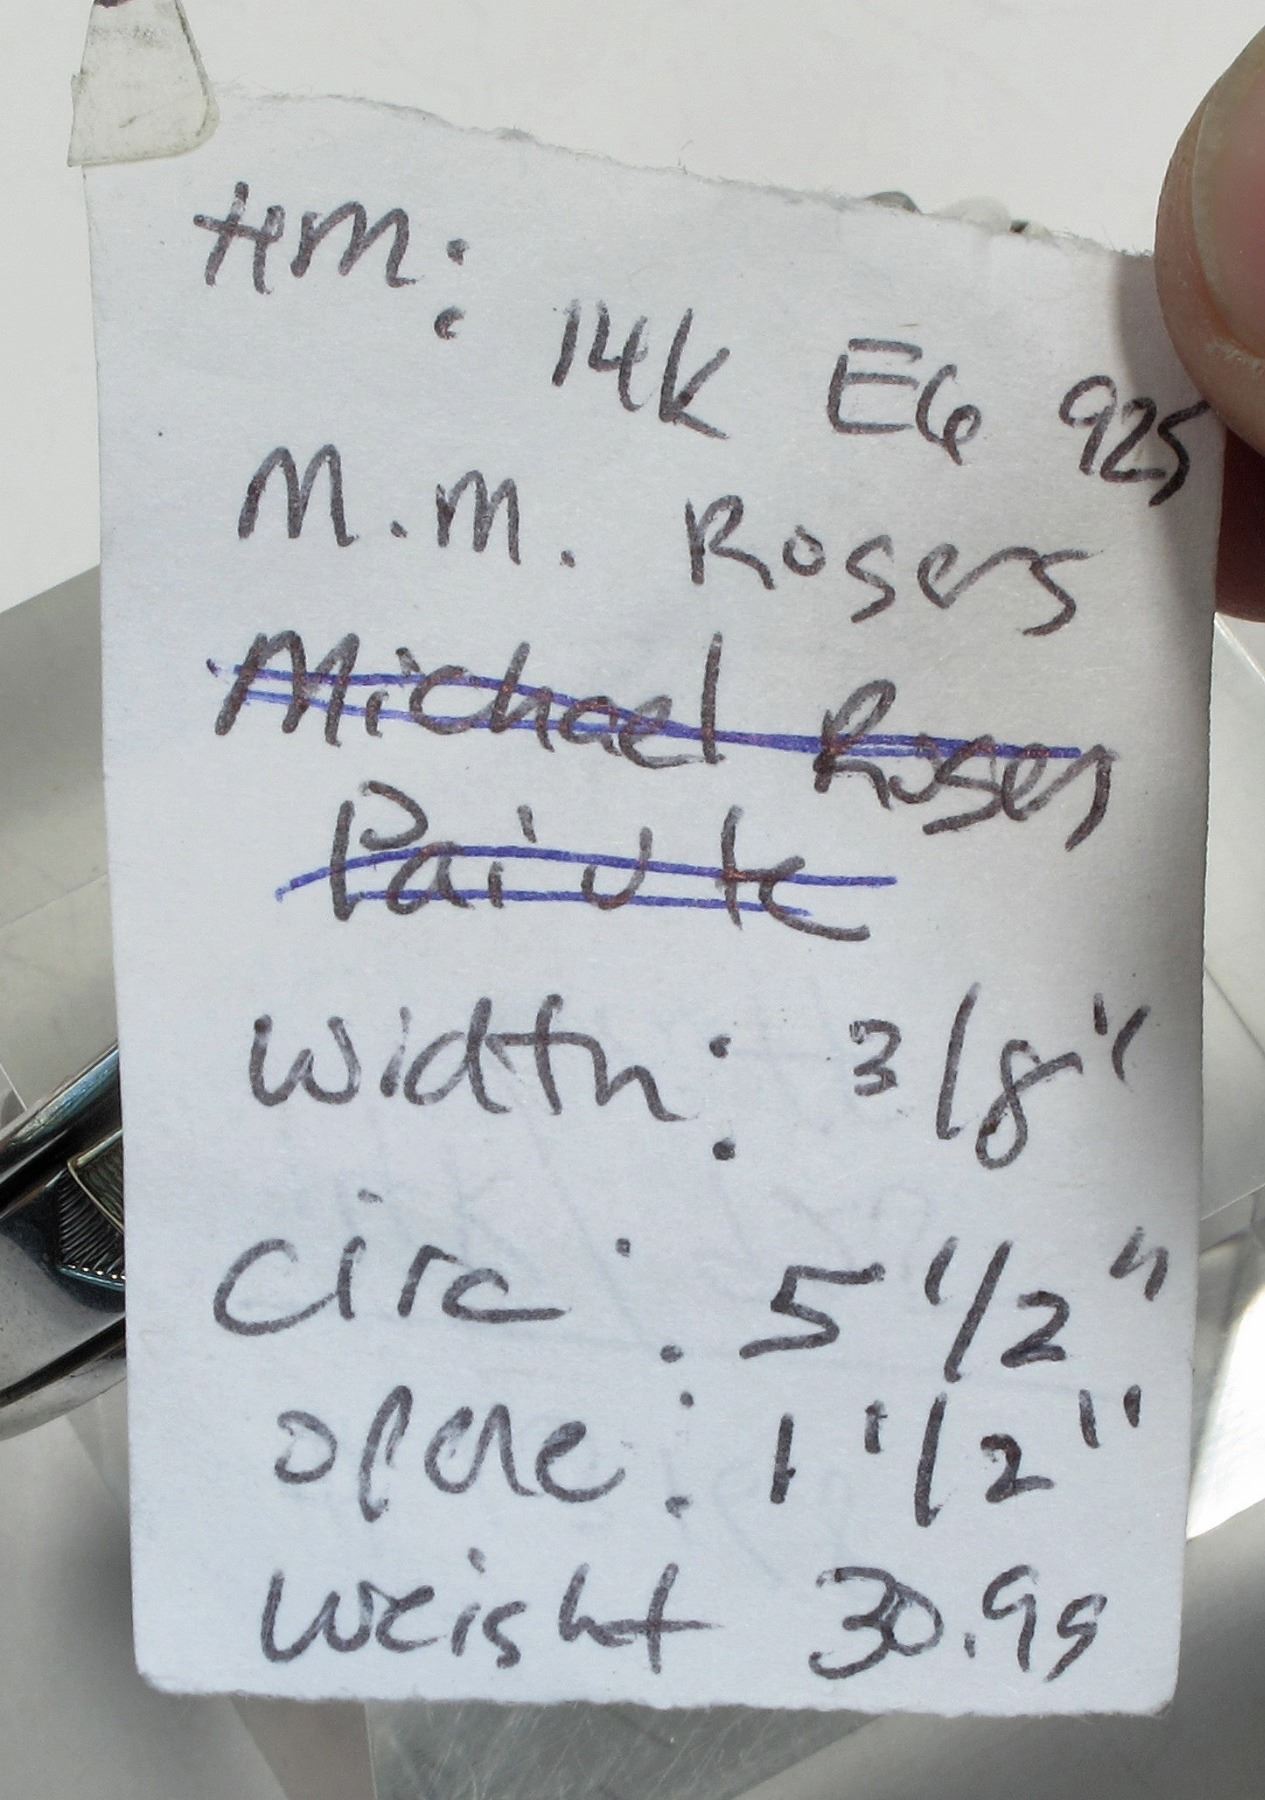 HM:
14k EG 925
M.M. Rogers
Michael Roger
Paiute
Width: 3/8"
Circ: 5 1/2"
opene: 1 1/2"
Weight 30.9g